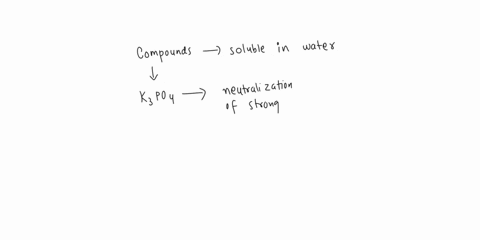 Compounds → soluble in water
↓
K₃PO₄ → neutralization
of strong